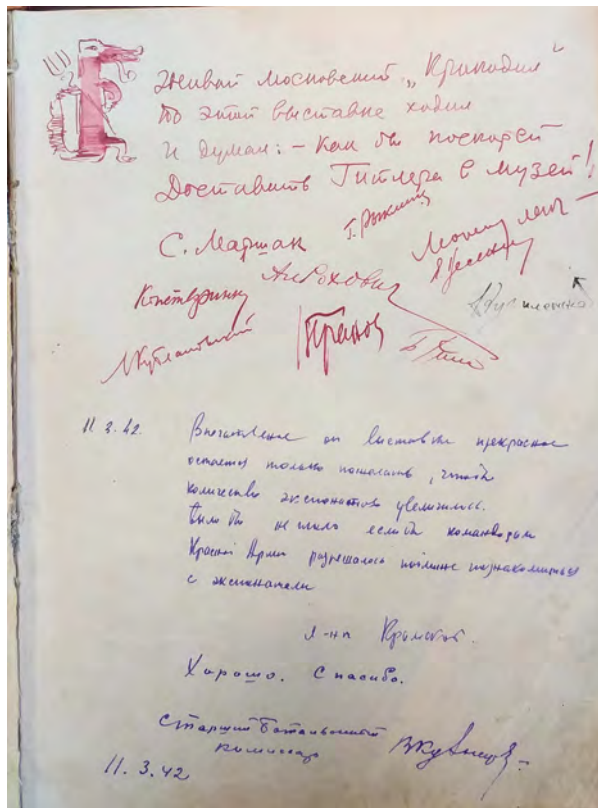 Живой московский „Крокодил“
По этой выставке ходил
И думал: – Как бы поскорей
Доставить Гитлера в музей!
С. Маршак
Г. Рыклин
Ан Рохович
Константин
Л Кублановский
Пранов
11.3.42. Впечатление от выставки прекрасное
остается только пожелать, чтоб
количество экспонатов увеличилось.
Было бы не плохо еслиб командирам
Красной Армии разрешалось поближе познакомиться
с экспонатами
Л-нт Крымской.
Хорошо. Спасибо.
Старший Батальонный
комиссар
11.3.42